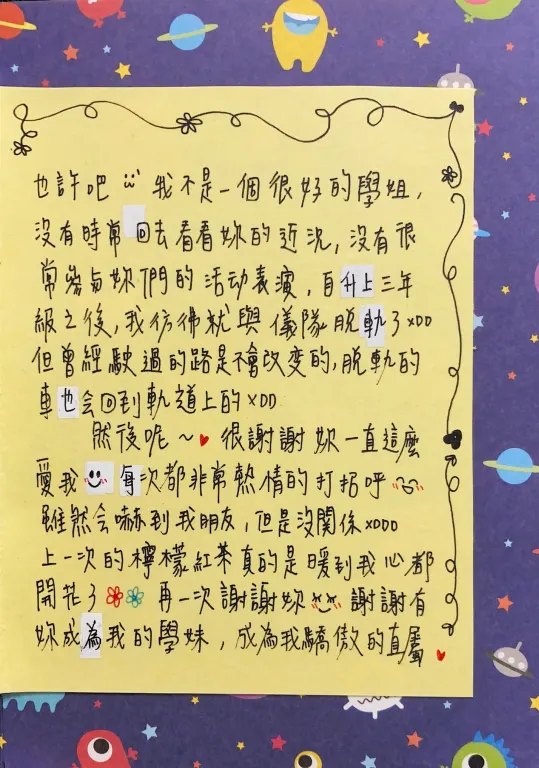 也許吧 我不是一個很好的學姐,
沒有時常回去看看妳的近況, 沒有很
常參與妳們的活动表演, 自升上三年
級之後, 我彷彿就與儀隊脫軌了xDD
但曾經駛過的路是不會改变的, 脫軌的
車也会回到軌道上的xDD
然後呢~♥ 很謝謝妳一直這麼
愛我 每次都非常熱情的打招呼
雖然会嚇到我朋友, 但是沒關係xDDD
上一次的檸檬紅茶真的是暖到我心都
開花了 再一次謝謝妳 謝謝有
妳成為我的學妹, 成為我驕傲的直屬♥